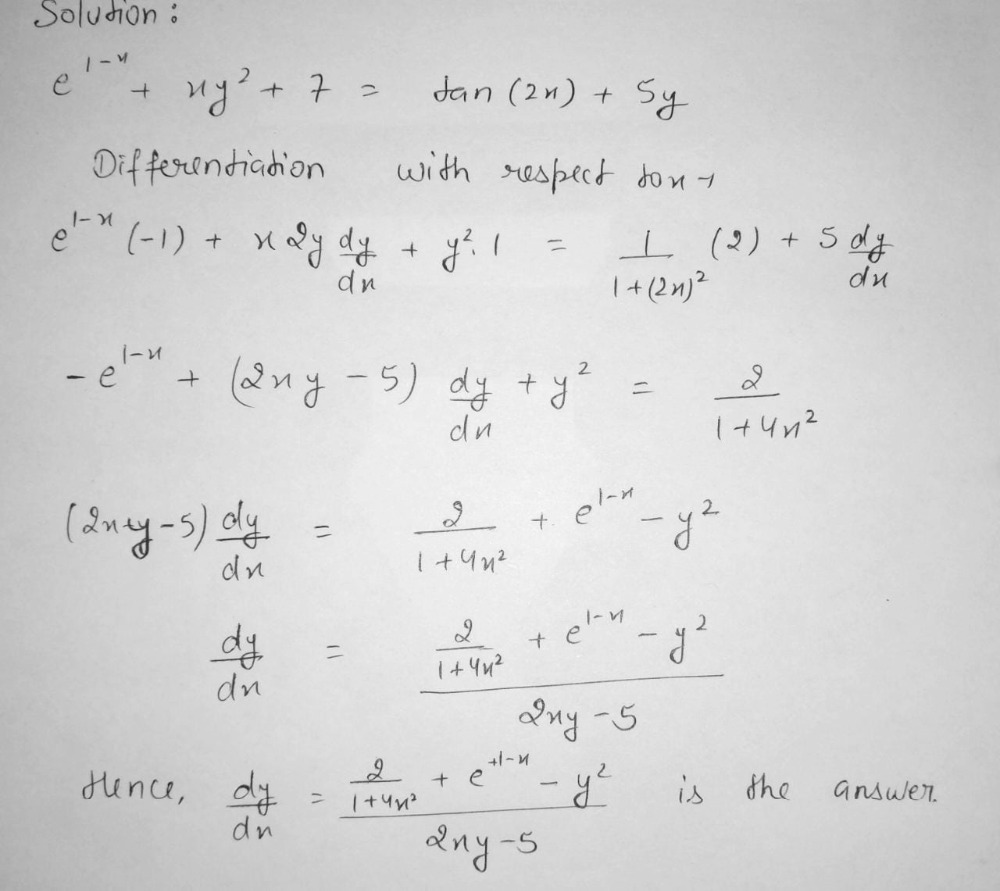 Solution :
e^{1-x} + xy^2 + 7 = tan (2x) + 5y
Differentiation with respect to x →
e^{1-x} (-1) + x 2y \frac{dy}{dx} + y^2 . 1 = \frac{1}{1+(2x)^2} (2) + 5 \frac{dy}{dx}
-e^{1-x} + (2xy - 5) \frac{dy}{dx} + y^2 = \frac{2}{1+4x^2}
(2xy - 5) \frac{dy}{dx} = \frac{2}{1+4x^2} + e^{1-x} - y^2
\frac{dy}{dx} = \frac{\frac{2}{1+4x^2} + e^{1-x} - y^2}{2xy - 5}
Hence, \frac{dy}{dx} = \frac{\frac{2}{1+4x^2} + e^{+1-x} - y^2}{2xy - 5} is the answer.